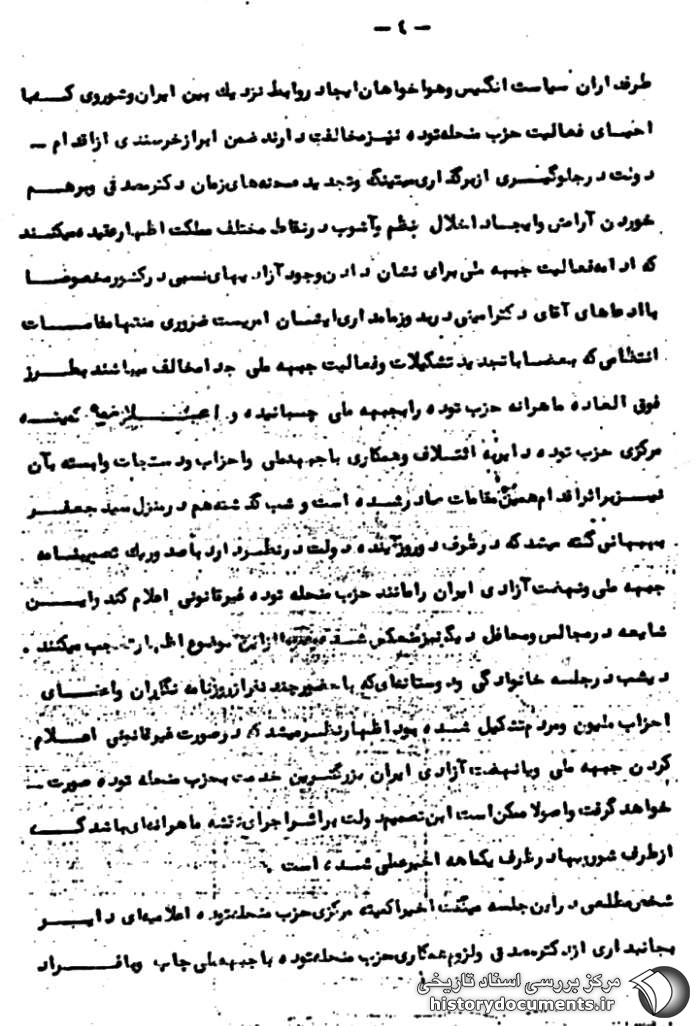 - ٤ -
طرفداران سیاست انگلیس و هواخواهان ایجاد روابط نزدیك بین ایران و شوروی که با
احیای فعالیت حزب منحله توده نیز مخالفت دارند ضمن ابراز خرسندی از اقدام -
دولت در جلوگیری از برگذاری میتینگ و تجدید صحنه های زمان دکتر مصدق و برهم
خوردن آرامش و ایجاد اخلال نظم و آشوب در نقاط مختلف مملکت اظهار عقیده میکنند
که ادامه فعالیت جبهه ملی برای نشان دادن وجود آزادیهای نسبی در کشور مخصوصا
با ادعاهای آقای دکتر امینی در بدو زمامداری ایشان امریست ضروری منتها مقامات
انتظامی که بعضا با تجدید تشکیلات و فعالیت جبهه ملی جدا مخالف میباشند بطرز
فوق العاده ماهرانه حزب توده را بجبهه ملی چسبانیده و کمیته
مرکزی حزب توده دایر به ائتلاف و همکاری با جبهه ملی و احزاب و دستجات وابسته بآن
نیز بر اثر اقدام همین مقامات صادر شده است و شب گذشته هم در منزل سید جعفر
بهبهانی گفته میشد که در ظرف دو روز آینده دولت در نظر دارد با صدور یك تصویبنامه
جبهه ملی و نهضت آزادی ایران را مانند حزب منحله توده غیرقانونی اعلام کند و این
شایعه در مجالس و محافل دیگر نیز منعکس شده از این موضوع اظهار تعجب میکنند .
دیشب در جلسه خانوادگی و دوستانه ای که با حضور چند نفر از روزنامه نگاران و اعضای
احزاب ملیون و مردم تشکیل شده بود اظهار نظر میشد که در صورت غیرقانونی اعلام
کردن جبهه ملی و یا نهضت آزادی ایران بزرگترین خدمت بحزب منحله توده صورت -
خواهد گرفت و اصولا ممکن است این تصمیم دولت بر اثر اجرای نقشه ماهرانه ای باشد که
از طرف شورویها در ظرف یکماهه اخیر عملی شده است .
شخص مطلعی در این جلسه میگفت اخیرا کمیته مرکزی حزب منحله توده اعلامیه ای دایر
بجانبداری از دکتر مصدق و لزوم همکاری حزب منحله توده با جبهه ملی چاپ و بافراد
مرکز بررسی اسناد تاریخی
historydocuments.ir